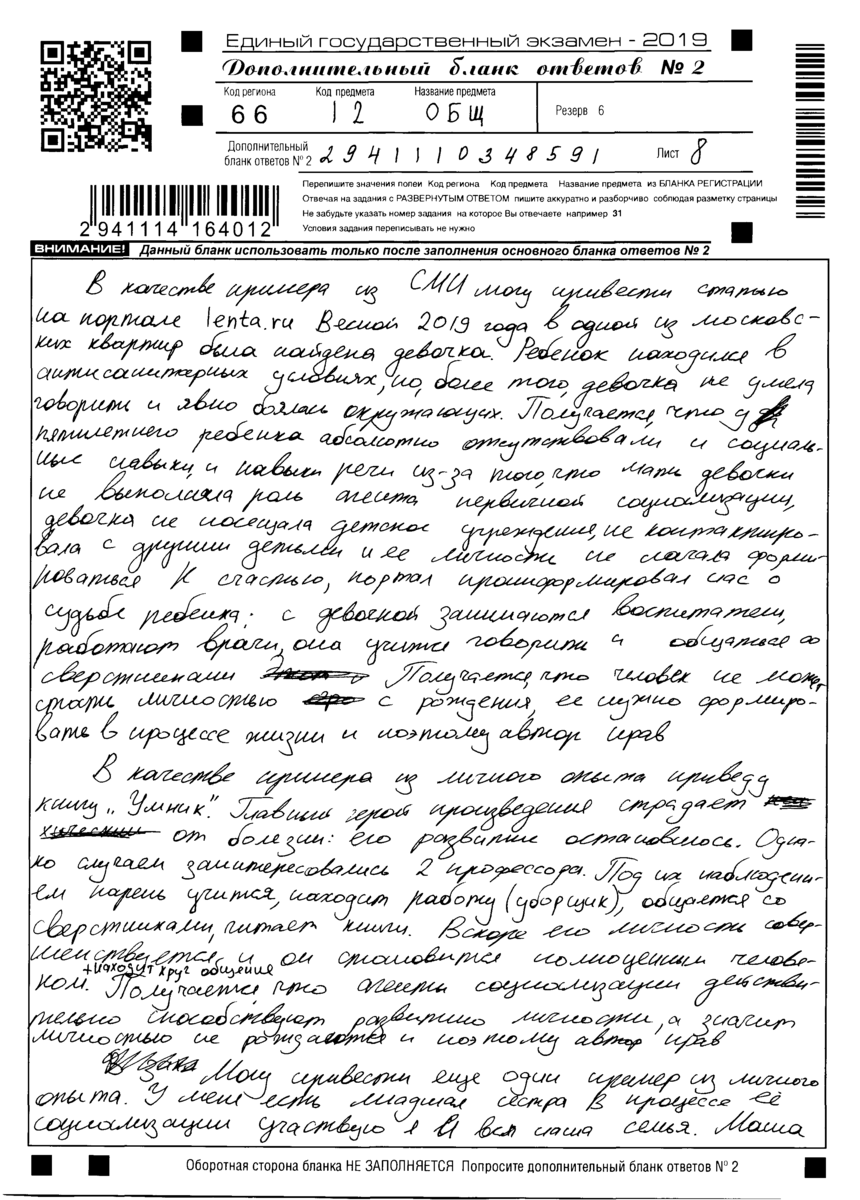 Единый государственный экзамен - 2019
Дополнительный бланк ответов № 2
Код региона Код предмета Название предмета
66 12 ОБЩ Резерв 6
Дополнительный бланк ответов № 2 2941110348591 Лист 8
Перепишите значения полей Код региона Код предмета Название предмета из БЛАНКА РЕГИСТРАЦИИ
Отвечая на задания с РАЗВЕРНУТЫМ ОТВЕТОМ пишите аккуратно и разборчиво соблюдая разметку страницы
Не забудьте указать номер задания на которое Вы отвечаете например 31
Условия задания переписывать не нужно
2 941114 164012
ВНИМАНИЕ! Данный бланк использовать только после заполнения основного бланка ответов № 2
В качестве примера из СМИ могу привести статью
на портале lenta.ru Весной 2019 года в одной из московс-
ких квартир была найдена девочка. Ребенок находился в
антисанитарных условиях, но, более того, девочка не умела
говорить и явно боялась окружающих. Получается, что у
пятилетнего ребенка абсолютно отсутствовали и социаль-
ные навыки, и навыки речи из-за того, что мать девочки
не выполняла роль агента первичной социализации,
девочка не посещала детское учреждение, не контактиро-
вала с другими детьми и ее личность не начала форми-
роваться К счастью, портал проинформировал нас о
судьбе ребенка: с девочкой занимаются воспитатели,
работают врачи, она учится говорить и общаться со
сверстниками Получается, что человек не может
стать личностью с рождения, ее нужно формиро-
вать в процессе жизни и поэтому автор прав
В качестве примера из личного опыта приведу
книгу „Умник". Главный герой произведения страдает
от болезни: его развитие остановилось. Одна-
ко случаем заинтересовались 2 профессора. Под их наблюдени-
ем парень учится, находит работу (уборщик), общается со
сверстниками, читает книги. Вскоре его личность совер-
шенствуется, и он становится полноценным челове-
+находит круг общения
ком. Получается, что агенты социализации действи-
тельно способствуют развитию личности, а значит
личностью не рождаются и поэтому автор прав
Могу привести еще один пример из личного
опыта. У меня есть младшая сестра В процессе её
социализации участвую я и вся наша семья. Маша
Оборотная сторона бланка НЕ ЗАПОЛНЯЕТСЯ Попросите дополнительный бланк ответов № 2